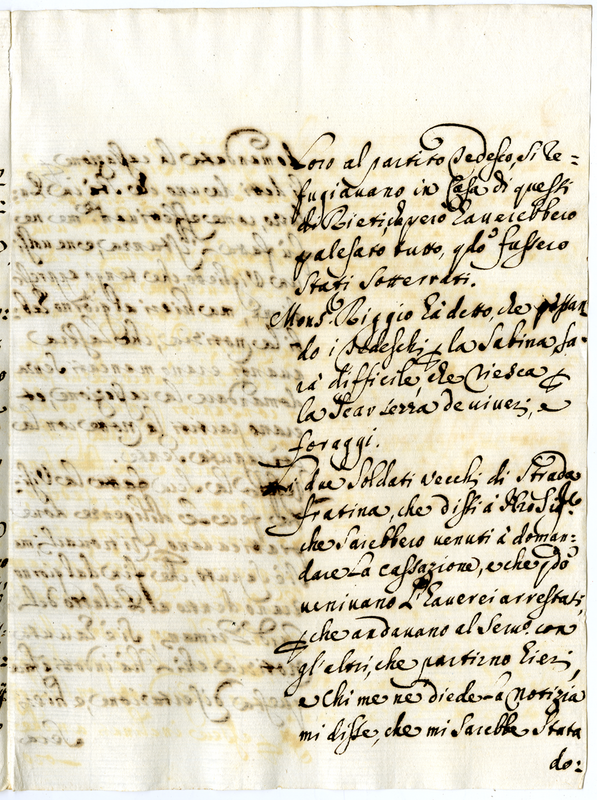 loro al partito Tedesco, si re=
fugiauano in Casa di questi
di Rieti, che però l'auerebbero
palesato tutto, qdo fussero
stati sotterrati.
Monsr. Riggio hà detto, che passan
do i Tedeschi p la Sabina, sa
rà difficile, che riesca p
la scarsezza de viueri, e
foraggi.
i due Soldati vecchi di Strada
fratina, che dissi à
che sarebbero venuti à doman=
dare la cassazione, e che qdo
veniuano l'hauerei arrestati,
p che andauano al Seruo. con
gl'altri, che partirno hieri,
e chi me ne diede la notizia
mi disse, che mi sarebbe stata
do=